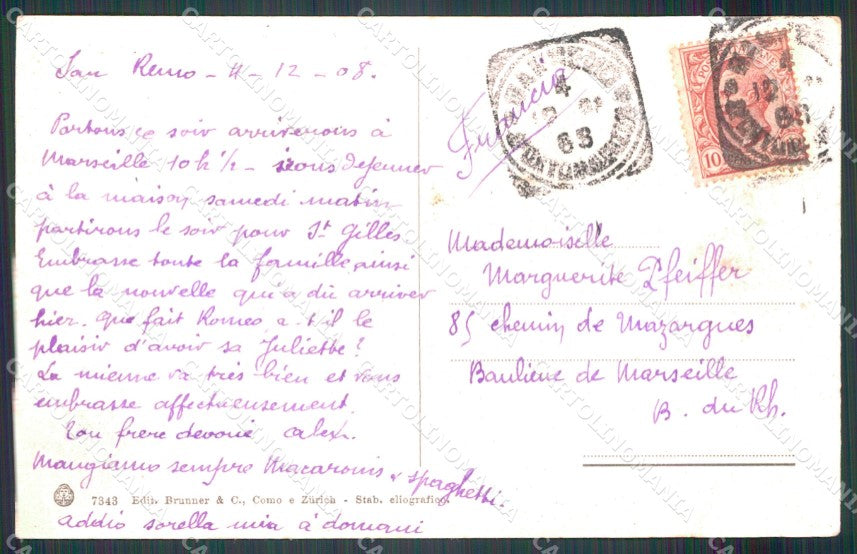 San Remo - 4 - 12 - 08.
Partons ce soir arriverons à
Marseille 10h ½ - irons dejeuner
à la maison, samedi matin
partirons le soir pour St Gilles
Embrasse toute la famille ainsi
que la nouvelle qui a dû arriver
hier. Que fait Romeo, a-t-il le
plaisir d'avoir sa Juliette?
La mienne va très bien et vous
embrasse affectueusement.
Ton frere devoué Calix.
Mangiamo sempre Macaronis & spaghetti.
7343 Edit. Brunner & C., Como e Zürich - Stab. eliografico.
addio sorella mia à domani
Francia
4
12
10
Mademoiselle
Marguerite Pfeiffer
85 chemin de Mazargues
Banlieue de Marseille
B. du Rh.
CARTOLINOMANIA